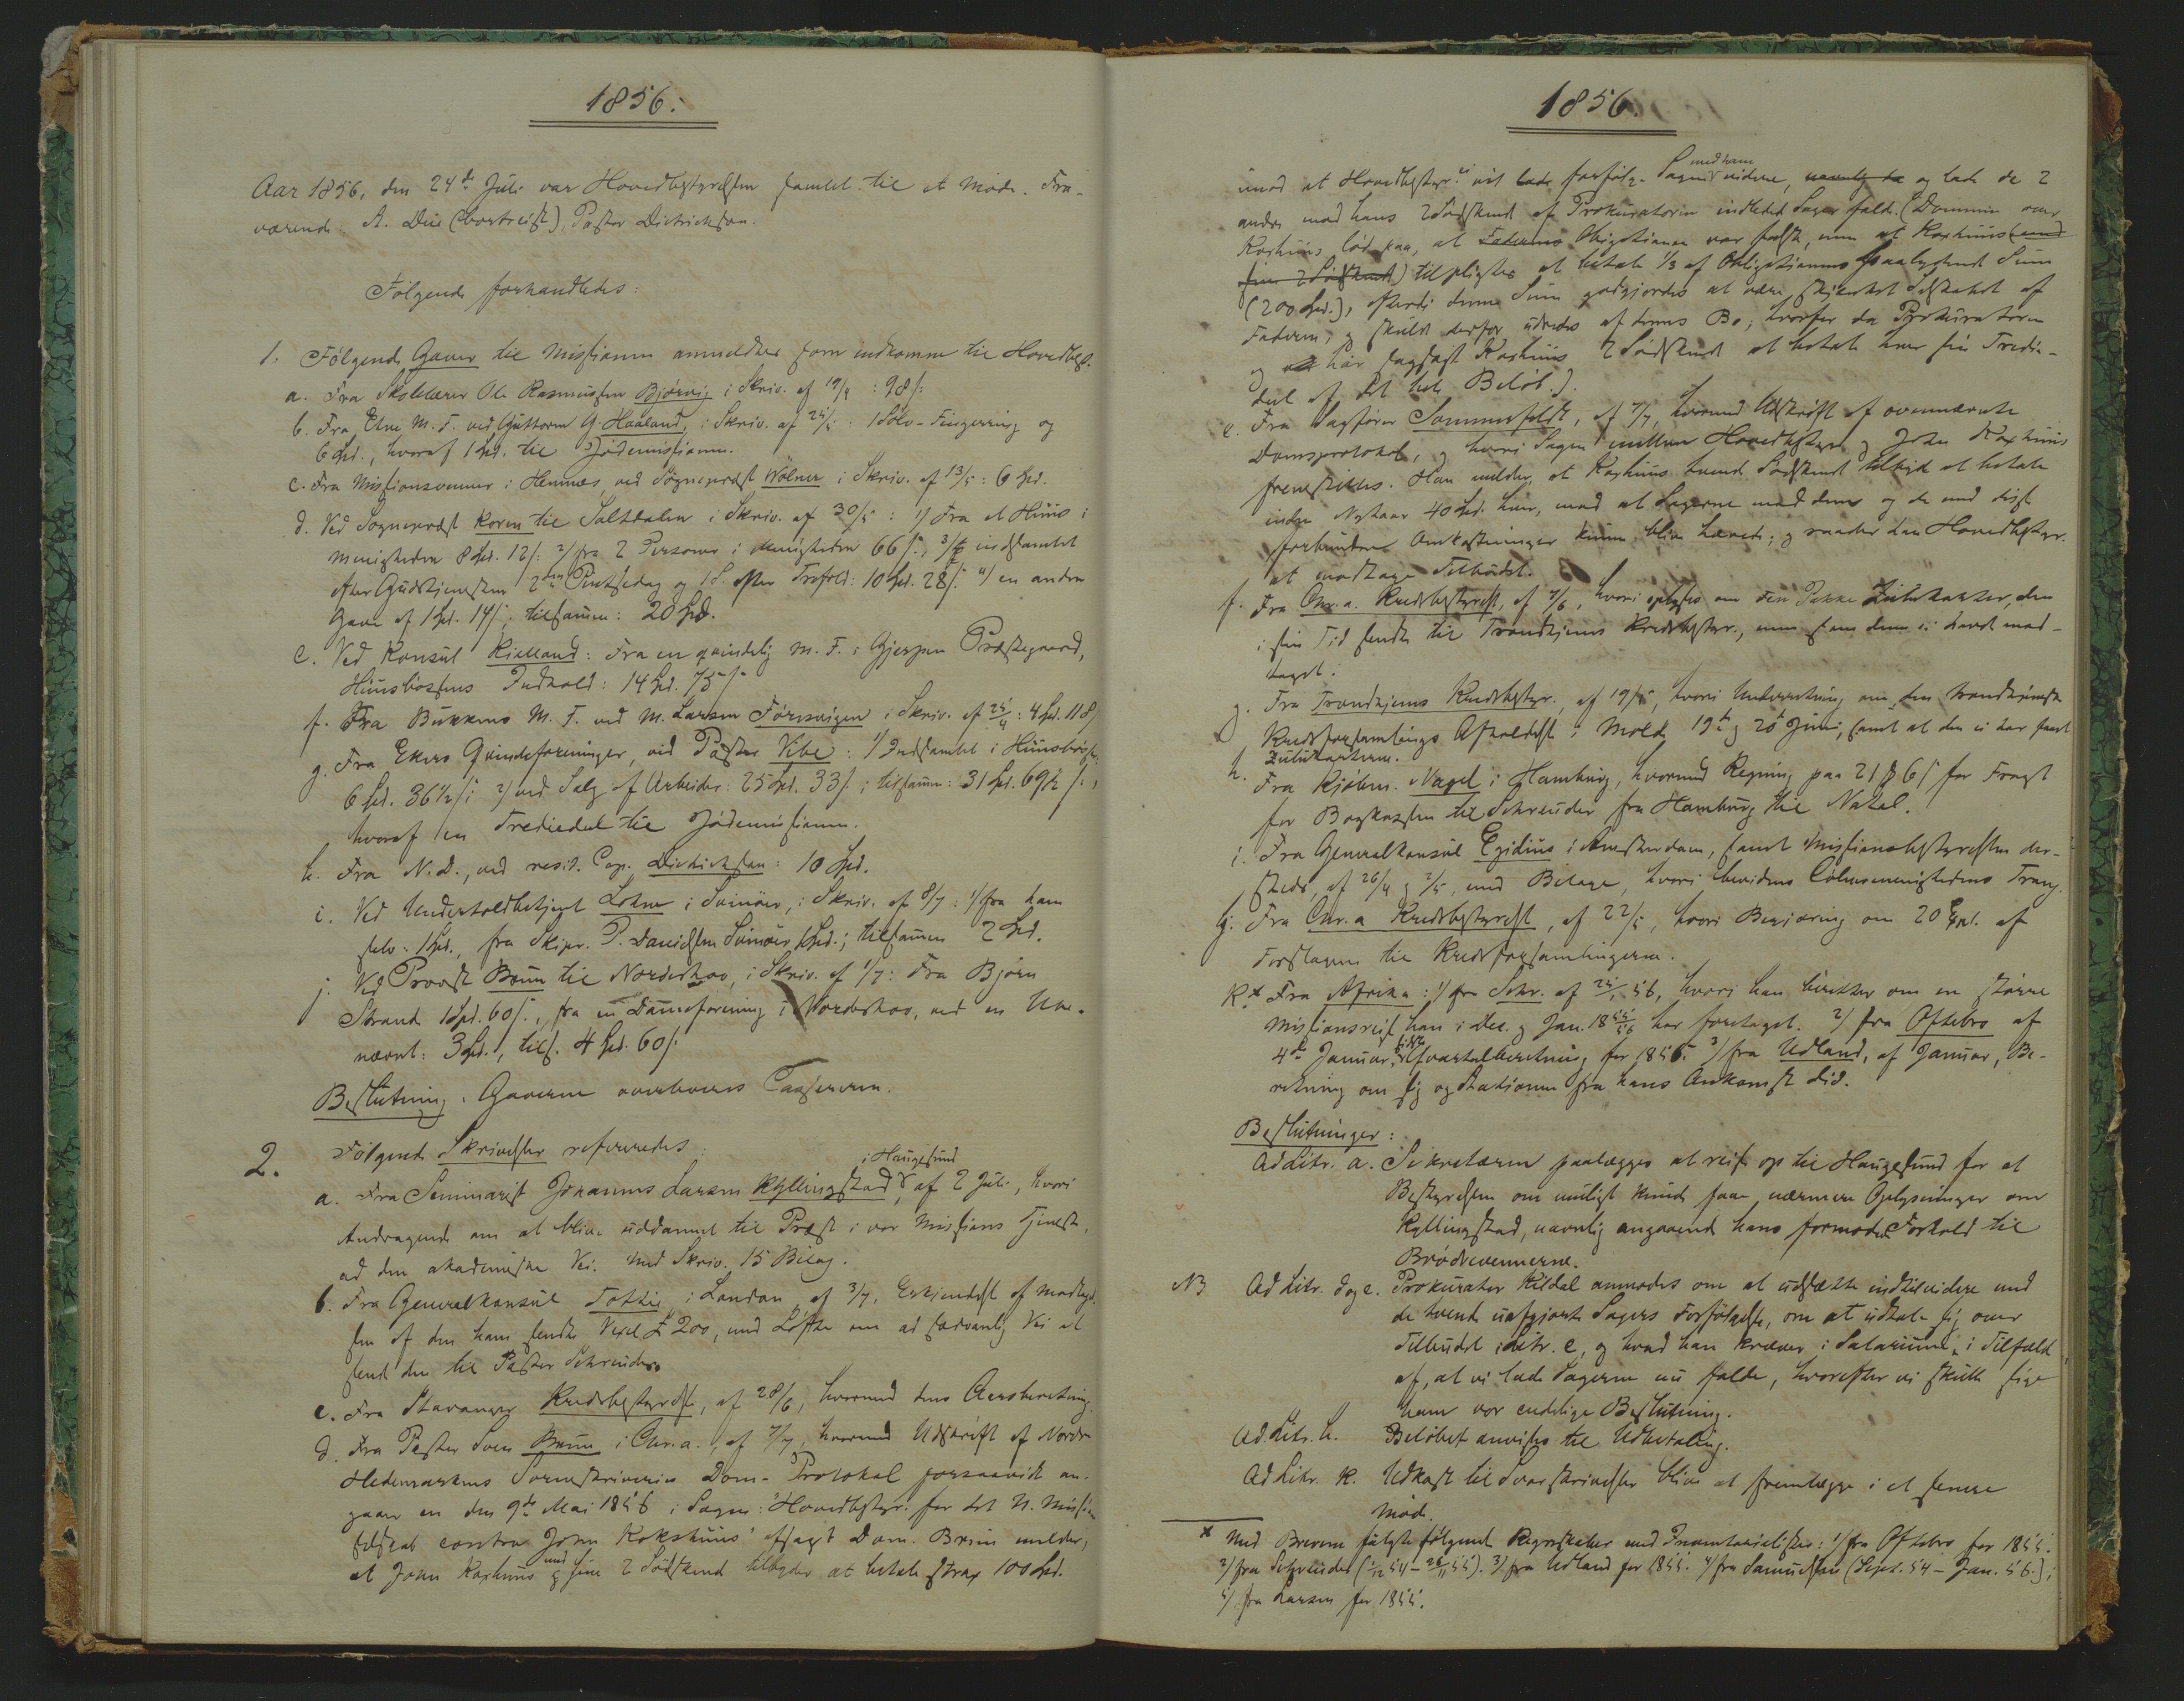 1856.
Aar 1856, den 24de Juli var Hovedbestyrelsen samlet til et Møde. Fra-
værende: A. Due (bortreist), Pastor Dietrichson.
Følgende forhandledes:
1. Følgende Gaver til Missionen anmeldtes som indkomne til Hovedbest.
a. Fra Skolelærer Ole Rasmussen Bjørvig i Skriv. af 19/4 : 98 s.
b. Fra Elne M. F. ved Guttorm G. Haaland, i Skriv. af 24/5 : 1 Sølv-Fingerring og
6 Spd., hvoraf 1 Spd. til Jødemissionen.
c. Fra Missionsvenner i Hemnæs ved Sogneprest Wolner i Skriv. af 13/5 : 6 Spd.
d. Ved Sogneprest Koren til Saltdalen i Skriv. af 30/5 : 1) Fra et Huus i
Menigheden 8 Spd. 12 s. 2) fra 2 Personer i Menigheden 66 s., 3) indsamlet
efter Gudstjenesten 2den Pintsedag og 1 S. efter Trefold: 10 Spd. 28 s. 4) en anden
Gave af 1 Spd. 14 s; tilsammen: 20 Spd.
e. Ved Konsul Kielland: Fra en qvindelig M. F. i Gjerpen Præstegaard,
Huusbøssens Indhold: 14 Spd. 75 s.
f. Fra Bukkens M. F. ved M. Larsen Førresvigen i Skriv. af 24/4 : 4 Spd. 118
g. Fra Ekers Qvindeforeninger, ved Pastor Vibe : 1) Indsamlet i Huusbøsser
6 Spd. 36 1/2 s; 2) ved Salg af Arbeider: 25 Spd. 33 s.; tilsammen: 31 Spd. 69 1/2 s.,
hvoraf en Trediedel til Jødemissionen.
h. Fra N. D., ved resid. Cap. Dietrichson: 10 Spd.
i. Ved Undertoldbetjent Lohne i Svinøer, i Skriv. af 8/7 : 1) fra ham
selv: 1 Spd., fra Skipr. P. Danielsen Svinøer, 1 Spd.; tilsammen 2 Spd.
j. Ved Provst Bruun til Norderhov, i Skriv. af 1/7: Fra Bjørn
Strande 1 Spd. 60 s., fra en Dameforening i Norderhov, ved en Une-
nævnt: 3 Spd., tils. 4 Spd. 60 s.
Beslutning: Gaverne overleveres Casereren.
2. Følgende Skrivelser refereredes:
a. Fra Seminarist Johannes Larsen Kyllingstad i Haugesund, af 2 Juli, hvori
Andragende om at blive uddannet til Præst i vor Missions Tjeneste,
ad den akademiske Vei. Med Skriv. 15 Bilag.
b. Fra Generalkonsul Tottie i London af 3/7, Erkjendelse af Modtagel-
sen af den ham sendte Vexel £ 200, med Løfte om ad sædvanlig Vei at
sende den til Pastor Schreuder.
c. Fra Stavanger Kredsbestyrelse, af 28/6, hvormed dens Aarsberetning.
d. Fra Pastor Sven Bruun i Chr.a., af 7/7, hvormed Udskrift af Nordre
Hedemarkens Sorenskriveries Dom-Protokol forsaavidt an-
gaaer en den 9de Mai 1856 i Sagen: "Hovedbestyr. for det N. Missions-
selskab contra John Kokshuus" afsagt Dom. Bruun melder,
at John Koxhuus med sine 2 Sødskende tilbyder at betale strax 100 Spd.
1856.
imod at Hovedbestyr. ei vil lade forfølge Sagen med ham videre, og lade de 2
andre mod hans 2 Sødskende af Prokuratoren indledede Sager falde. (Dommen over
Koxhuus lød paa, at Faderens Obligationen var falsk, men at Koxhuus (med
sine 2 Sødskende) tilpligtes at betale 1/3 af Obligationens paalydende Sum
(200 Spd.), efterdi denne Sum godgjordes at være skjænket Selskabet af
Faderen, og skulde derfor udredes af dennes Bo; hvorfor da Prokuratoren
og har sagsøgt Koxhuus 2 Sødskende at betale hver sin Tredie-
deel af det hele Beløb.).
e. Fra Sagfører Sommerfeldt, af 7/7, hvormed Udskrift af ovennævnte
Domsprotokol, og hvori Sagen mellem Hovedbestyr. og John Koxhuus
fremstilles. Han melder, at Koxhuus tvende Sødskende tilbyde at betale
inden Nytaar 40 Spd. hver, mod at Sagerne mod dem og de med disse
forbundne Omkostninger kunne blive hævede; og raader han Hovedbestyr.
at modtage Tilbudet.
f. Fra Chr.a. Kredsbestyrelse, af 7/6, hvori oplyses om den Pakke Zulukarter, den
i sin Tid sendte til Trondhjems Kredsbestyr., men som denne ei havde mod-
taget.
g. Fra Trondhjems Kredsbestyr., af 19/5, hvori Underretning om den trondhjemske
Kredsforsamlings Afholdelse i Molde 19de og 20de Juni, samt at den ei har faaet
Zulukarterne.
h. Fra Kjøbm. Nagel i Hamburg, hvormed Regning paa 21 6 s for Fragt
for Bogkassen til Schreuder fra Hamburg til Natal.
i. Fra Generalkonsul Egidius i Amsterdam, samt Missionsbestyrelsen der-
steds, af 26/4 og 2/5, med Bilage, hvori bevidnes Cølnsmenighedens Trang.
j. Fra Chr.a Kredsbestyrelse, af 22/5, hvori Begjæring om 20 Expl. af
Forslagene til Kredsforsamlingerne.
k.x Fra Afrika: 1) fra Schr. af 24/1 56, hvori han beretter om en større
Missionsreise han i Dec. og Jan. 1855/56 har foretaget. 2) fra Oftebro af
4de Januar, Qvartalberetning for 1856. 3) fra Udland, af Januar, Be-
retning om sig og Stationen fra hans Ankomst did.
Beslutninger:
Ad Litr. a. Sekretæren paalægges at reise op til Haugesund for at
Bestyrelsen om muligt kunde faae nærmere Oplysninger om
Kyllingstad, navnlig angaaende hans formodede Forhold til
Brødrevennerne.
NB Ad Litr. d og e. Prokurator Kildal anmodes om at udsætte indtil videre med
de tvende uafgjorte Sagers Forfølgelse, om at udtale sig over
Tilbudet i Litr. e, og hvad han kræver i Salarium, i Tilfælde
af, at vi lade Sagerne nu falde, hvorefter vi skulle sige
ham vor endelige Beslutning.
Ad. Litr. h. Beløbet anvises til Udbetaling.
Ad Litr. k. Udkast til Svarskrivelser blive at fremlægge i et senere
Møde.
x Med Brevene fulgte følgende Regnskaber med Inventarielister: 1) fra Oftebro for 1855.
2) fra Schreuder (1/12 54 - 26/11 55). 3) fra Udland for 1855. 4) fra Samuelsen (Sept. 54 - Jan. 56.);
5) fra Larsen for 1855.